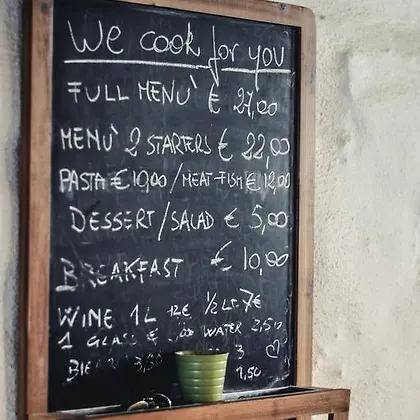 We cook for you
FULL MENU' € 27,00
MENU' 2 STARTERS € 22,00
PASTA € 10,00 / MEAT-FISH € 12,00
DESSERT / SALAD € 5,00
BREAKFAST € 10,00
WINE 1L 12€ ½ Lt 7€
1 GLASS € WATER 2,50
3
1,50